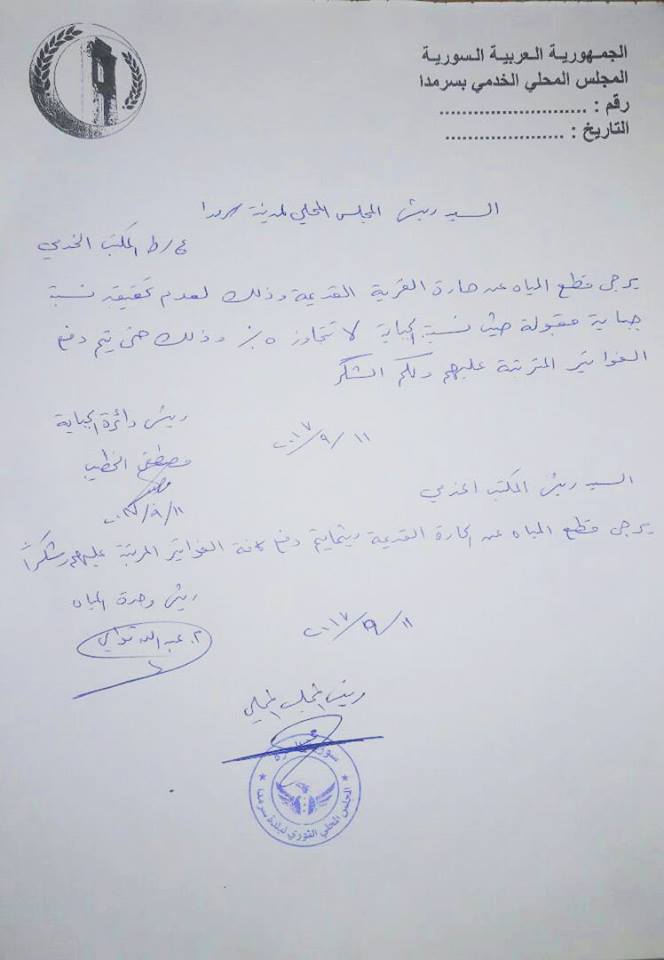 الجمهورية العربية السورية
المجلس المحلي الخدمي بسرمدا
رقم : ..........................
التاريخ : .....................
السيد رئيس المجلس المحلي لمدينة سرمدا
ع/ط المكتب الخدمي
يرجى قطع المياه عن حارة القرية القديمة وذلك لعدم تحقيقه نسبة
جباية مقبولة حيث نسبة الجباية لا تتجاوز ٥٪ وذلك حتى يتم دفع
الفواتير المترتبة عليهم ولكم الشكر
رئيس دائرة الجباية
٢٠١٧/٩/١١
مصطفى الخطيب
٢٠١٧/٩/١١
السيد رئيس المكتب الخدمي
يرجى قطع المياه عن الحارة القديمة ريثما يتم دفع كافة الفواتير المرتبة عليهم وشكراً
رئيس وحدة المياه
٢٠١٧/٩/١١
م. عبد الله
رئيس المجلس المحلي
سوريا الحرة
المجلس المحلي الثوري لبلدة سرمدا